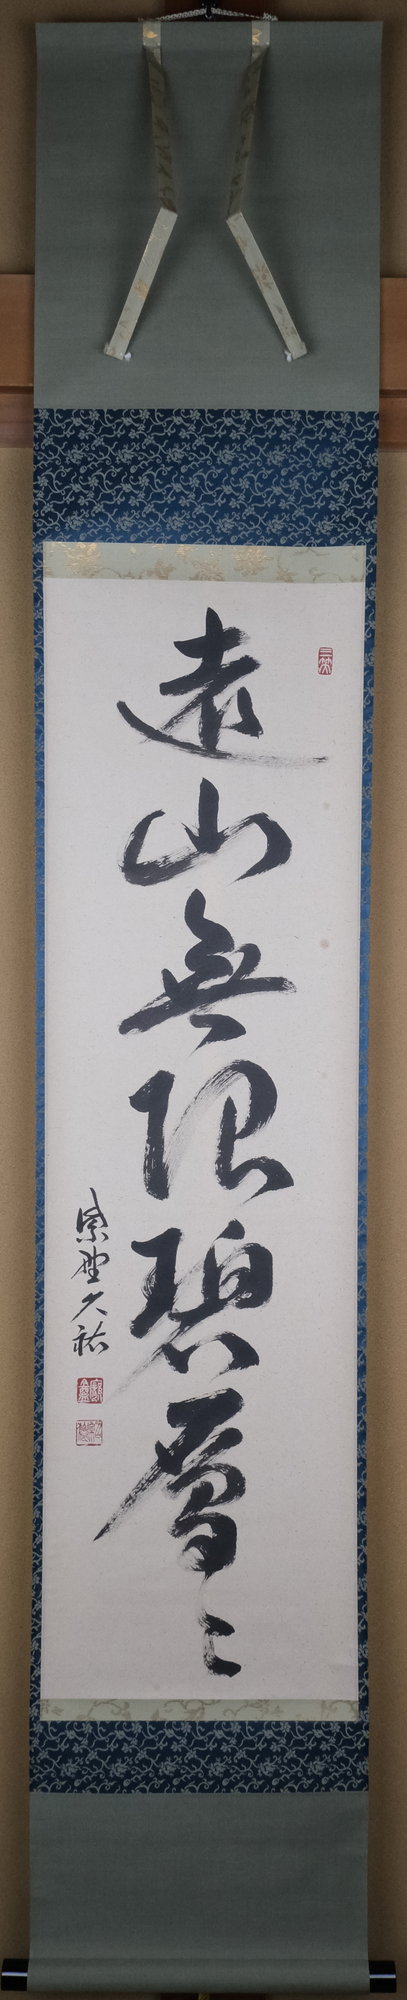 遠山無限碧層々
紫野久祐